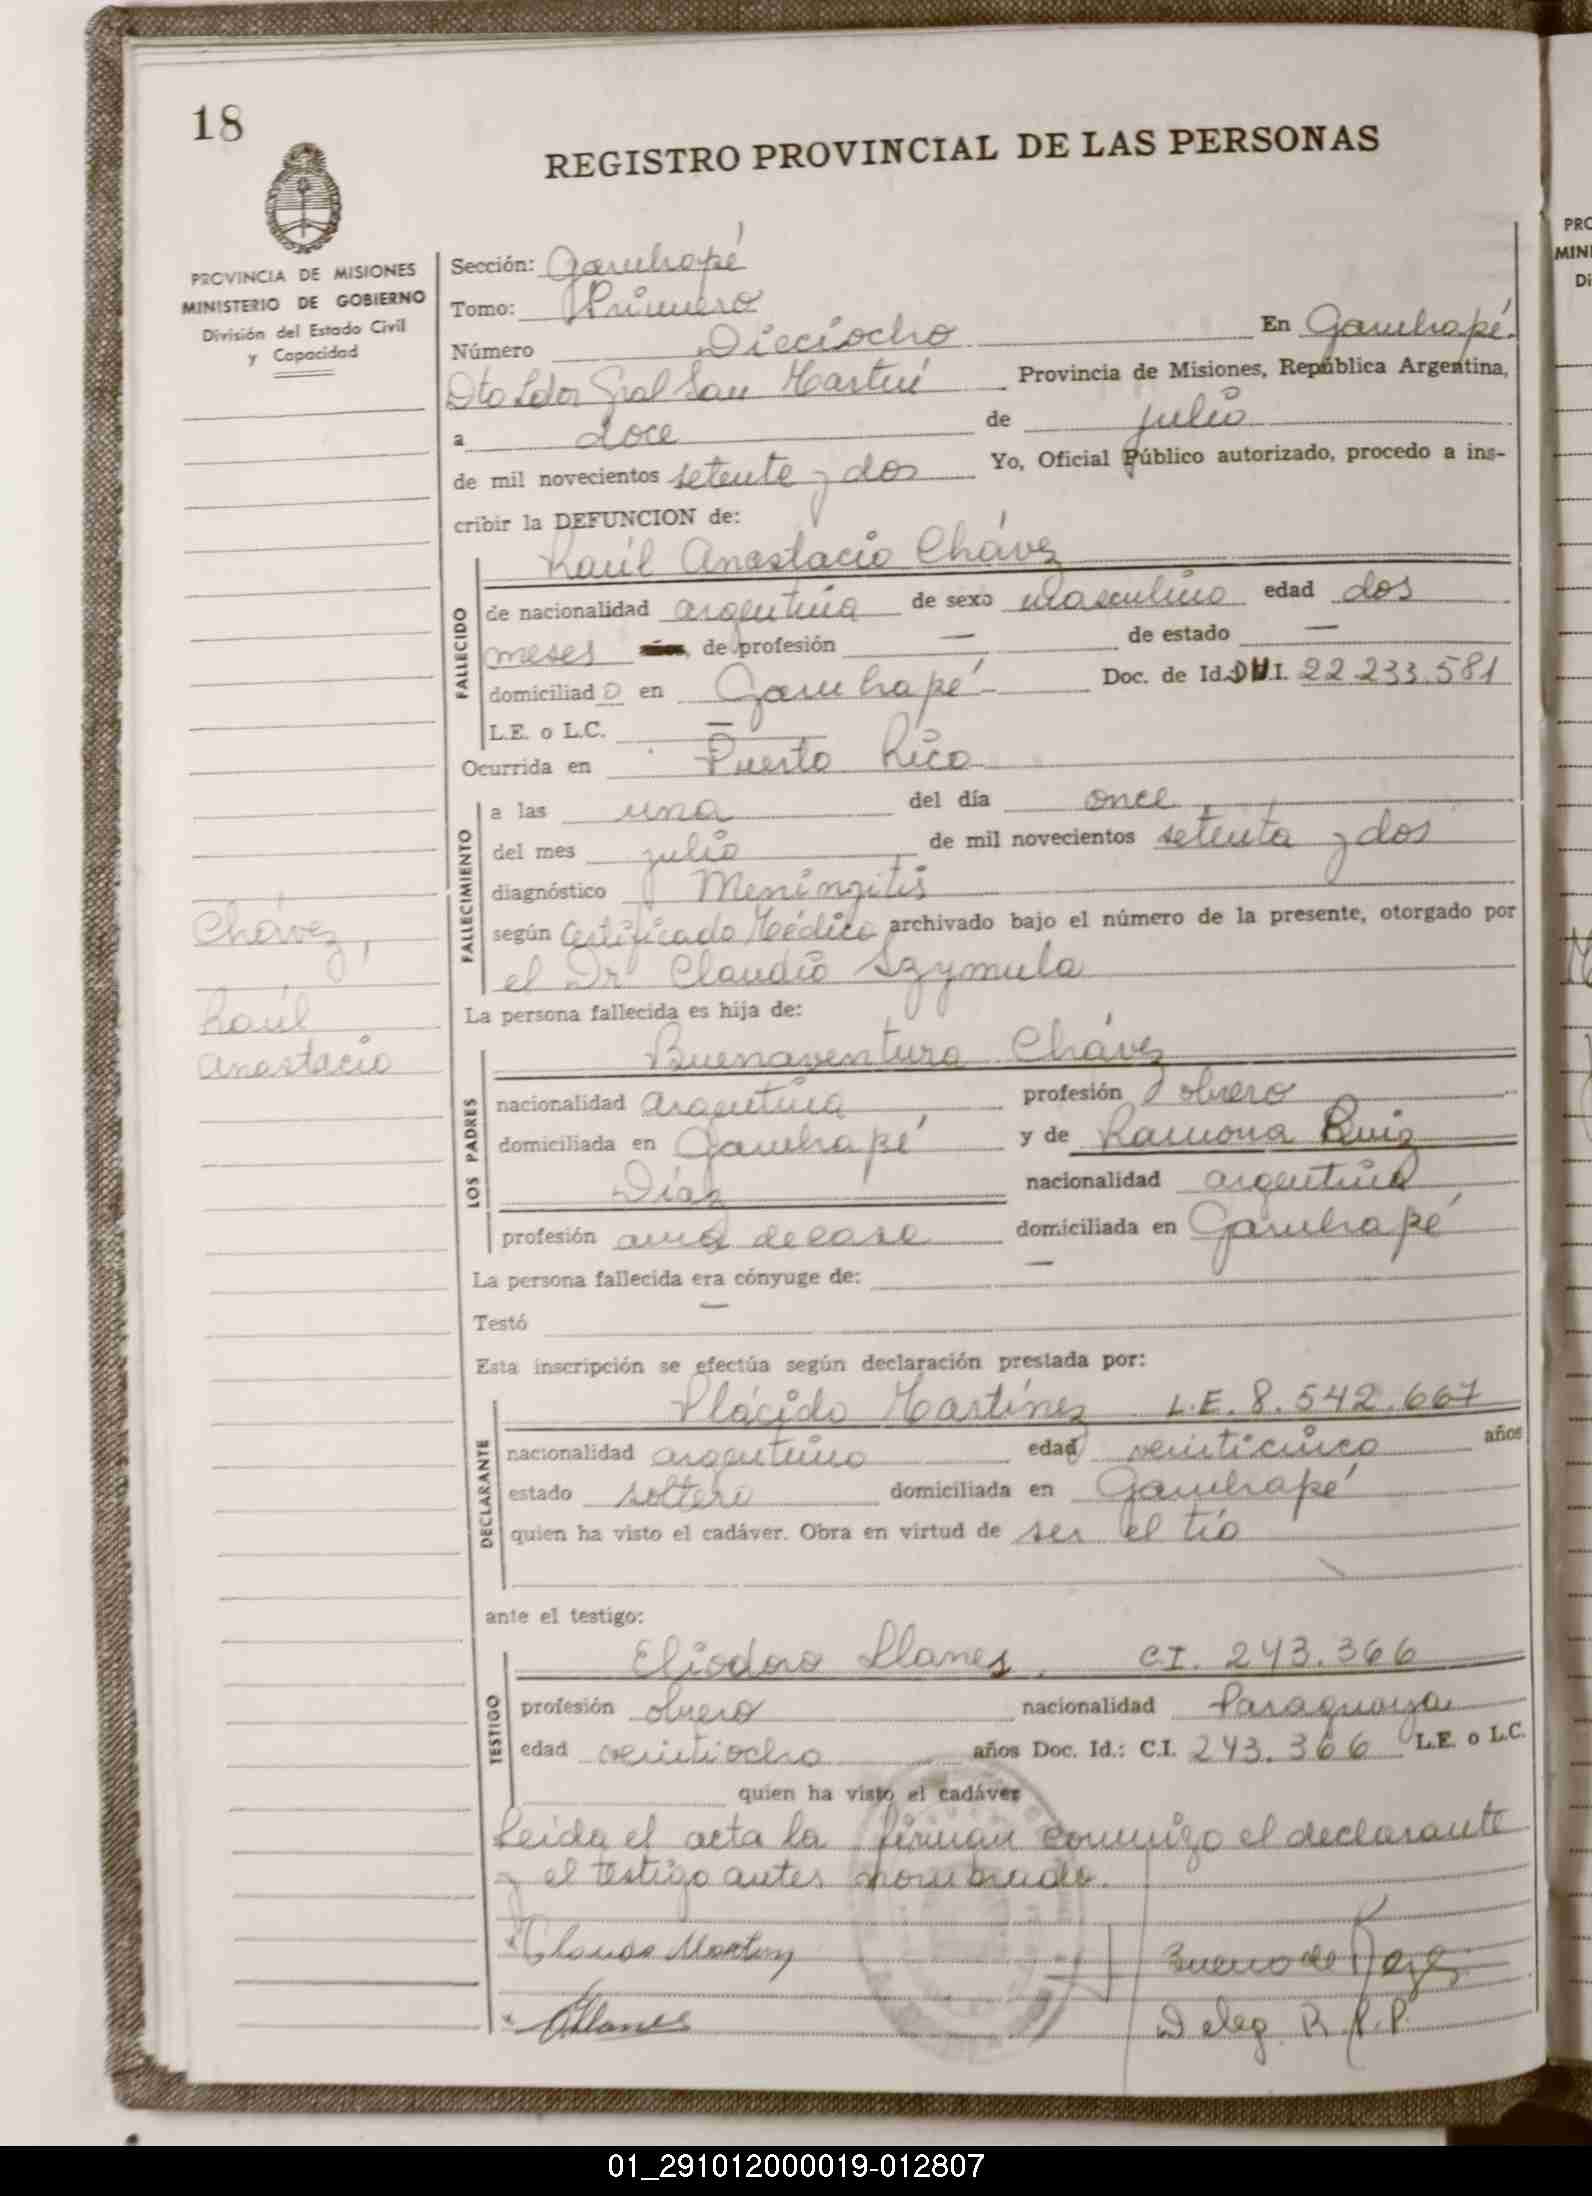 18
REGISTRO PROVINCIAL DE LAS PERSONAS
PROVINCIA DE MISIONES
MINISTERIO DE GOBIERNO
División del Estado Civil
y Capacidad
Sección: Garuhapé
Tomo: Primero
Número Dieciocho En Garuhapé.
Dto Ldor Gral San Martín Provincia de Misiones, República Argentina,
a doce de julio
de mil novecientos setenta y dos Yo, Oficial Público autorizado, procedo a ins-
cribir la DEFUNCION de:
Raúl Anastacio Chávez
FALLECIDO
de nacionalidad argentina de sexo masculino edad dos
meses años, de profesión — de estado —
domiciliado en Garuhapé Doc. de Id. D.U.I. 22.233.581
L.E. o L.C. —
Ocurrida en Puerto Rico
FALLECIMIENTO
a las una del día once
del mes julio de mil novecientos setenta y dos
diagnóstico Meningitis
según Certificado Médico archivado bajo el número de la presente, otorgado por
el Dr Claudio Szymula
Chávez,
Raúl
Anastacio
La persona fallecida es hija de:
Buenaventura Chávez
LOS PADRES
nacionalidad argentina profesión obrero
domiciliada en Garuhapé y de Ramona Ruiz
Díaz nacionalidad argentina
profesión ama de casa domiciliada en Garuhapé
La persona fallecida era cónyuge de: —
Testó —
Esta inscripción se efectúa según declaración prestada por:
Plácido Martínez L.E. 8.542.667
DECLARANTE
nacionalidad argentino edad veinticinco años
estado soltero domiciliada en Garuhapé
quien ha visto el cadáver. Obra en virtud de ser el tío
ante el testigo:
Eliodoro Llanes. C.I. 243.366
TESTIGO
profesión obrero nacionalidad Paraguaya
edad veintiocho años Doc. Id.: C.I. 243.366 L.E. o L.C.
quien ha visto el cadáver
Leida el acta la firman conmigo el declarante
y el testigo antes nombrado.
Deleg. R.P.P.
01_291012000019-012807